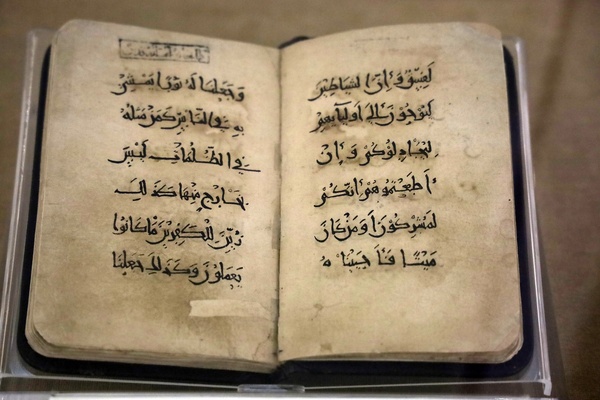 لفسق وإن الشيطين
ليوحون إلى أوليآئهم
ليجدلوكم وإن
أطعتموهم إنكم
لمشركون أومن كان
ميتا فأحيينه
وجعلنا له نورا يمشي
به في الناس كمن مثله
في الظلمات ليس
بخارج منها كذلك
زين للكفرين ما كانوا
يعملون وكذلك جعلنا